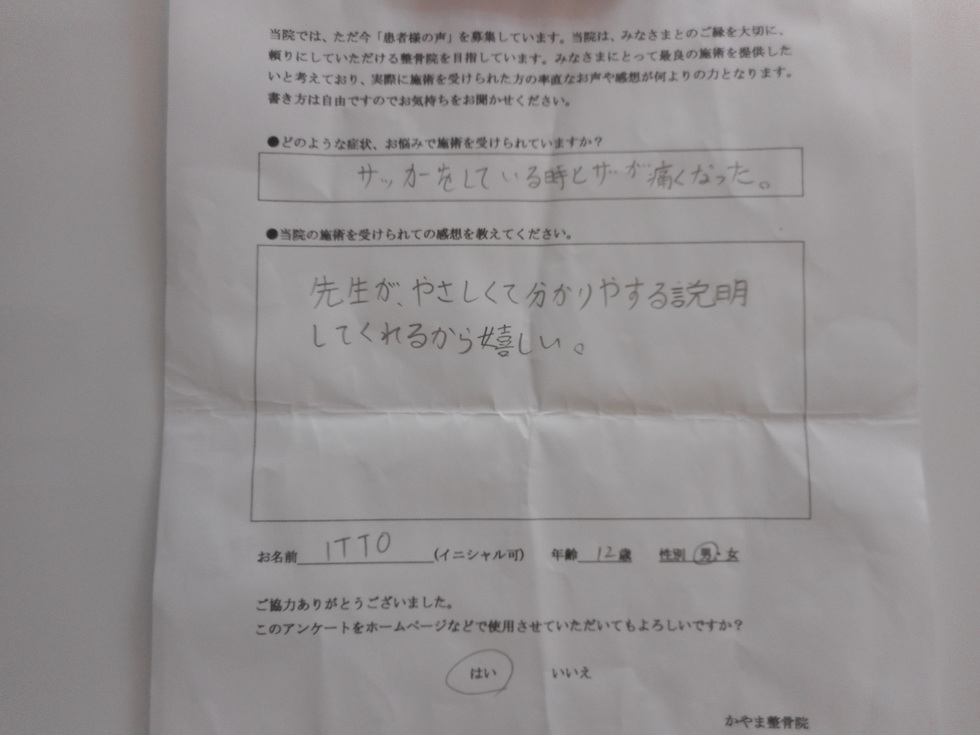 当院では、ただ今「患者様の声」を募集しています。当院は、みなさまとのご縁を大切に、
頼りにしていただける整骨院を目指しています。みなさまにとって最良の施術を提供した
いと考えており、実際に施術を受けられた方の率直なお声や感想が何よりの力となります。
書き方は自由ですのでお気持ちをお聞かせください。
●どのような症状、お悩みで施術を受けられていますか?
サッカーをしている時とザが痛くなった。
●当院の施術を受けられての感想を教えてください。
先生が、やさしくて分かりやする説明
してくれるから嬉しい。
お名前 ITTO (イニシャル可) 年齢 12歳 性別 男・女
ご協力ありがとうございました。
このアンケートをホームページなどで使用させていただいてもよろしいですか?
はい いいえ
かやま整骨院